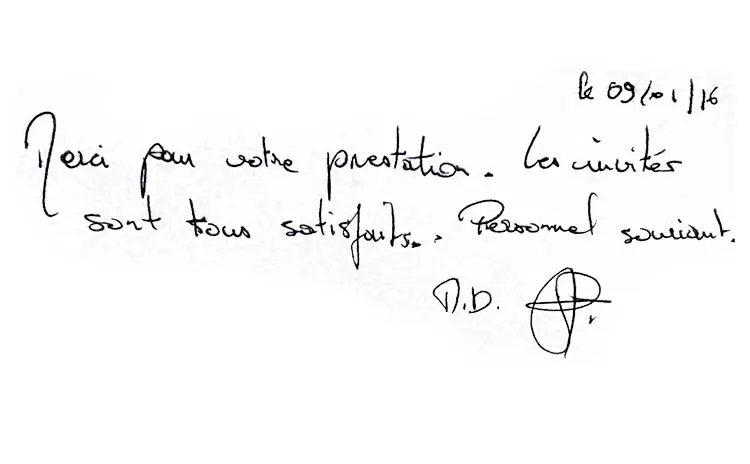 le 09/01/16
Merci pour votre prestation. Les invités
sont tous satisfaits. Personnel souriant.
D.D.